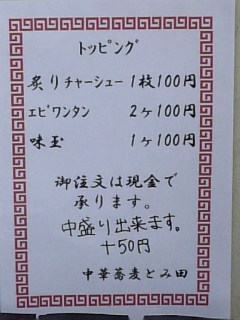 トッピング
炙りチャーシュー 1枚100円
エビワンタン 2ヶ100円
味玉 1ヶ100円
御注文は現金で
承ります。
中盛り出来ます。
+50円
中華蕎麦とみ田